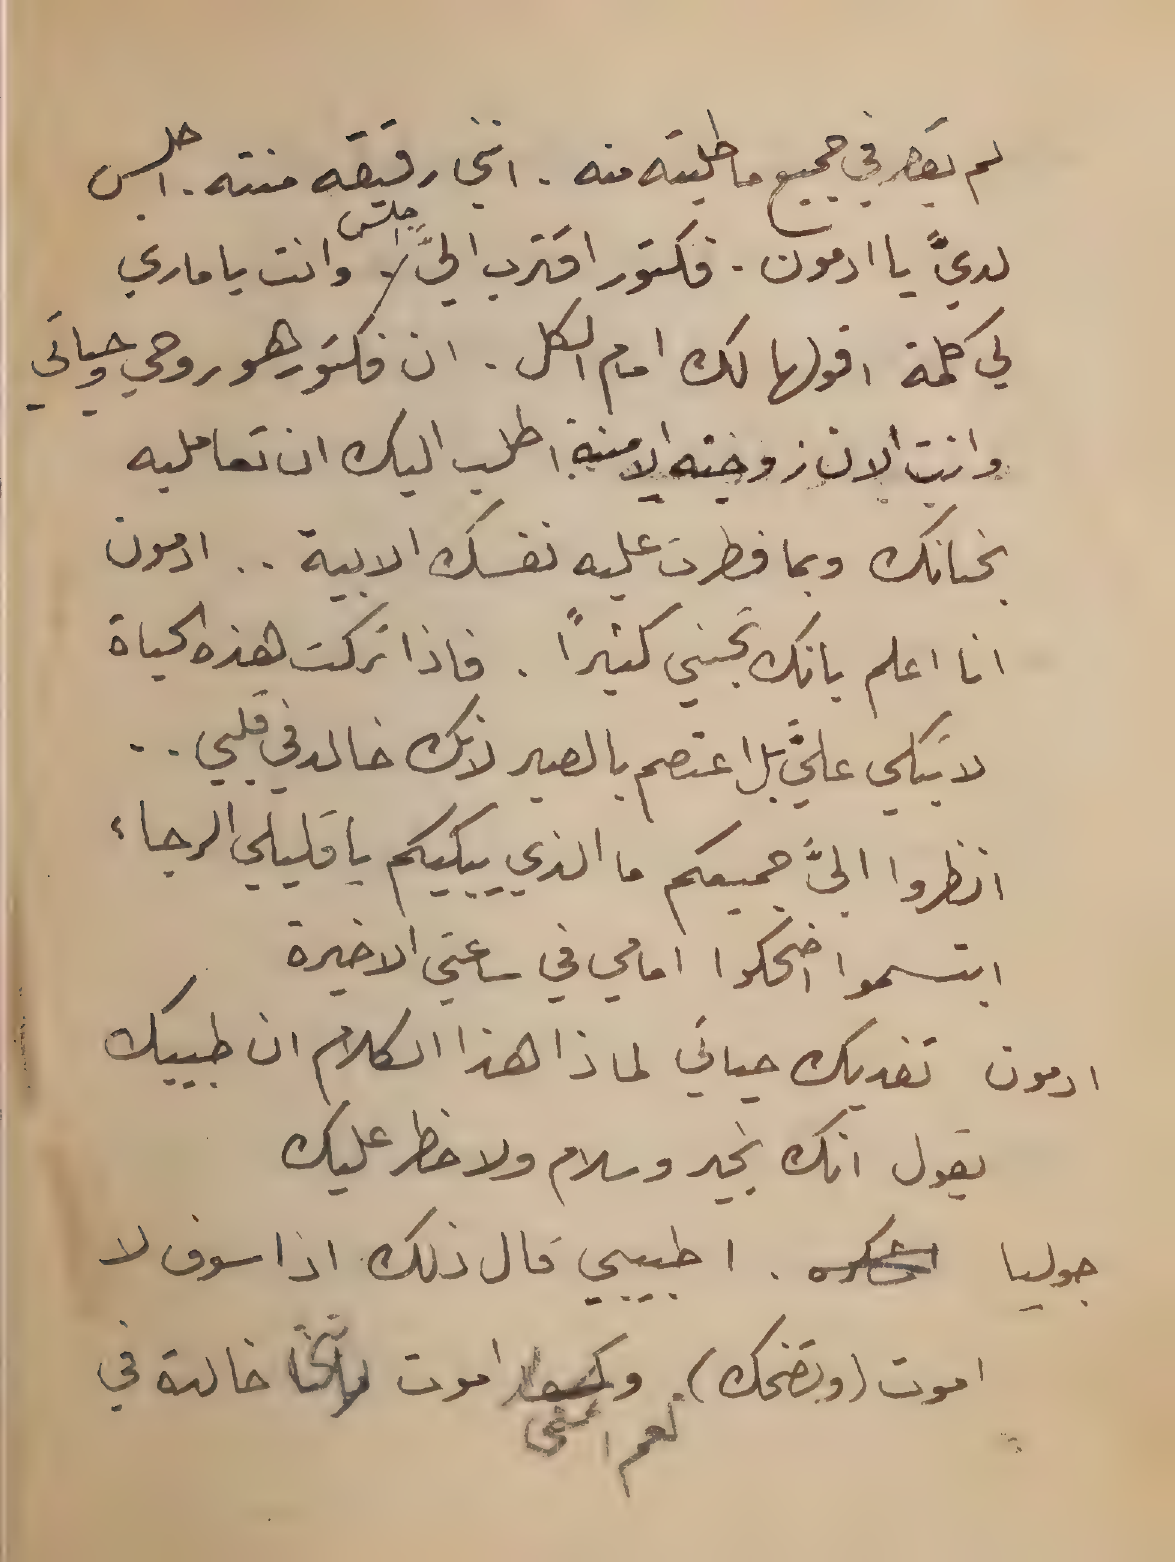 لم يقصر في جميع ما طلبته منه . انني رفيقه منته . اجلس
لديَّ يا ادمون . فكتور اقترب اليَّ اجلس وانت يا ماري
لي كلمة اقولها لك امام الكل . ان فكتور هو روحي وحياتي
وانت الان زوجته الامينة اطلب اليك ان تعامليه
بحنانك وبما فطرت عليه نفسك الابية .. ادمون
انا اعلم بانك تحبني كثيرًا . فاذا تركت هذه الحياة
لا تبكي عليَّ بل اعتصم بالصبر لانك خالد في قلبي ..
انظروا اليَّ جميعكم ما الذي يبكيكم يا قليلي الرجاء
ابتسموا اضحكوا امامي في ساعتي الاخيرة
ادمون تفديك حياتي لماذا هذا الكلام ان طبيبك
يقول انك بخير وسلام ولا خطر عليك
جوليا . ا طبيبي قال ذلك اذا سوف لا
اموت (وتضحك) اموت خالدة في
نعم